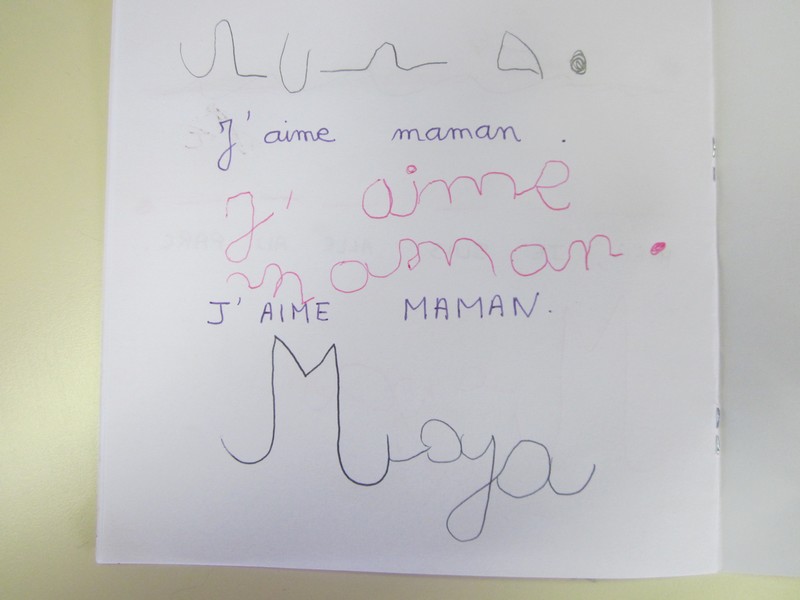 J'aime maman .
J' aime
maman .
J' AIME MAMAN.
Maya